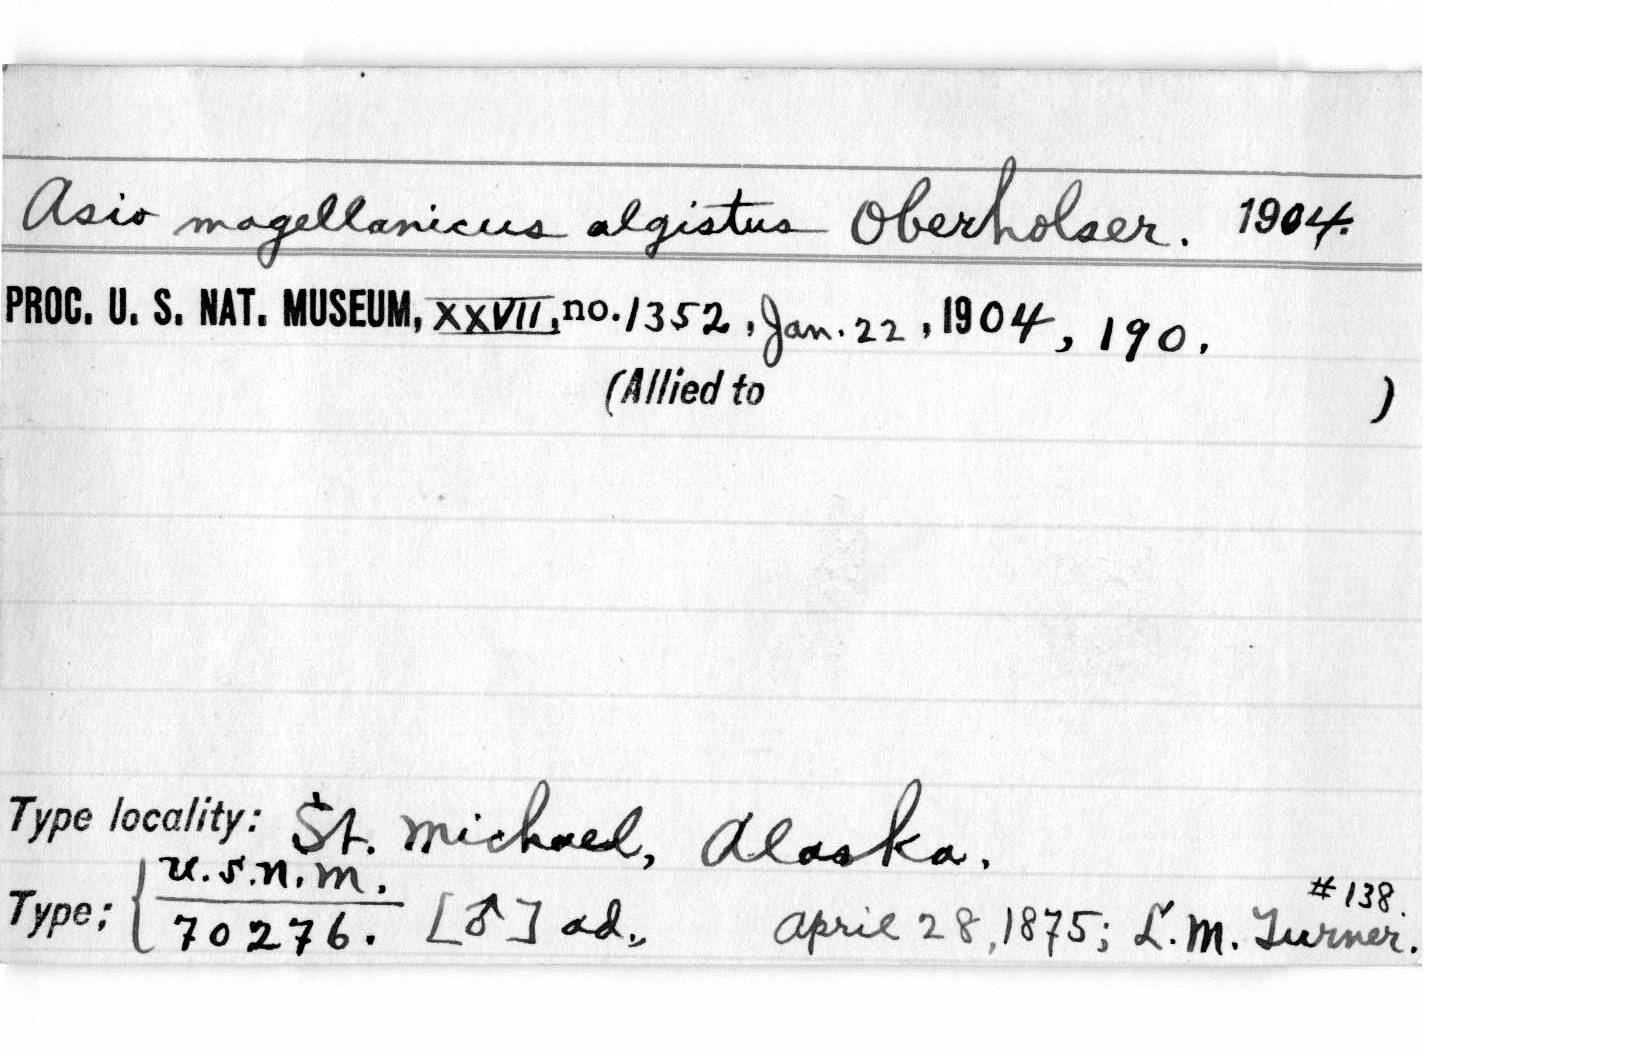 Asio magellanicus algistus Oberholser. 1904.
PROC. U. S. NAT. MUSEUM, XXVII, no. 1352, Jan. 22, 1904, 190.
(Allied to )
Type locality: St. Michael, Alaska.
U.S.N.M.
#138.
Type: { 70276. [♂] ad., April 28, 1875; L. M. Turner.